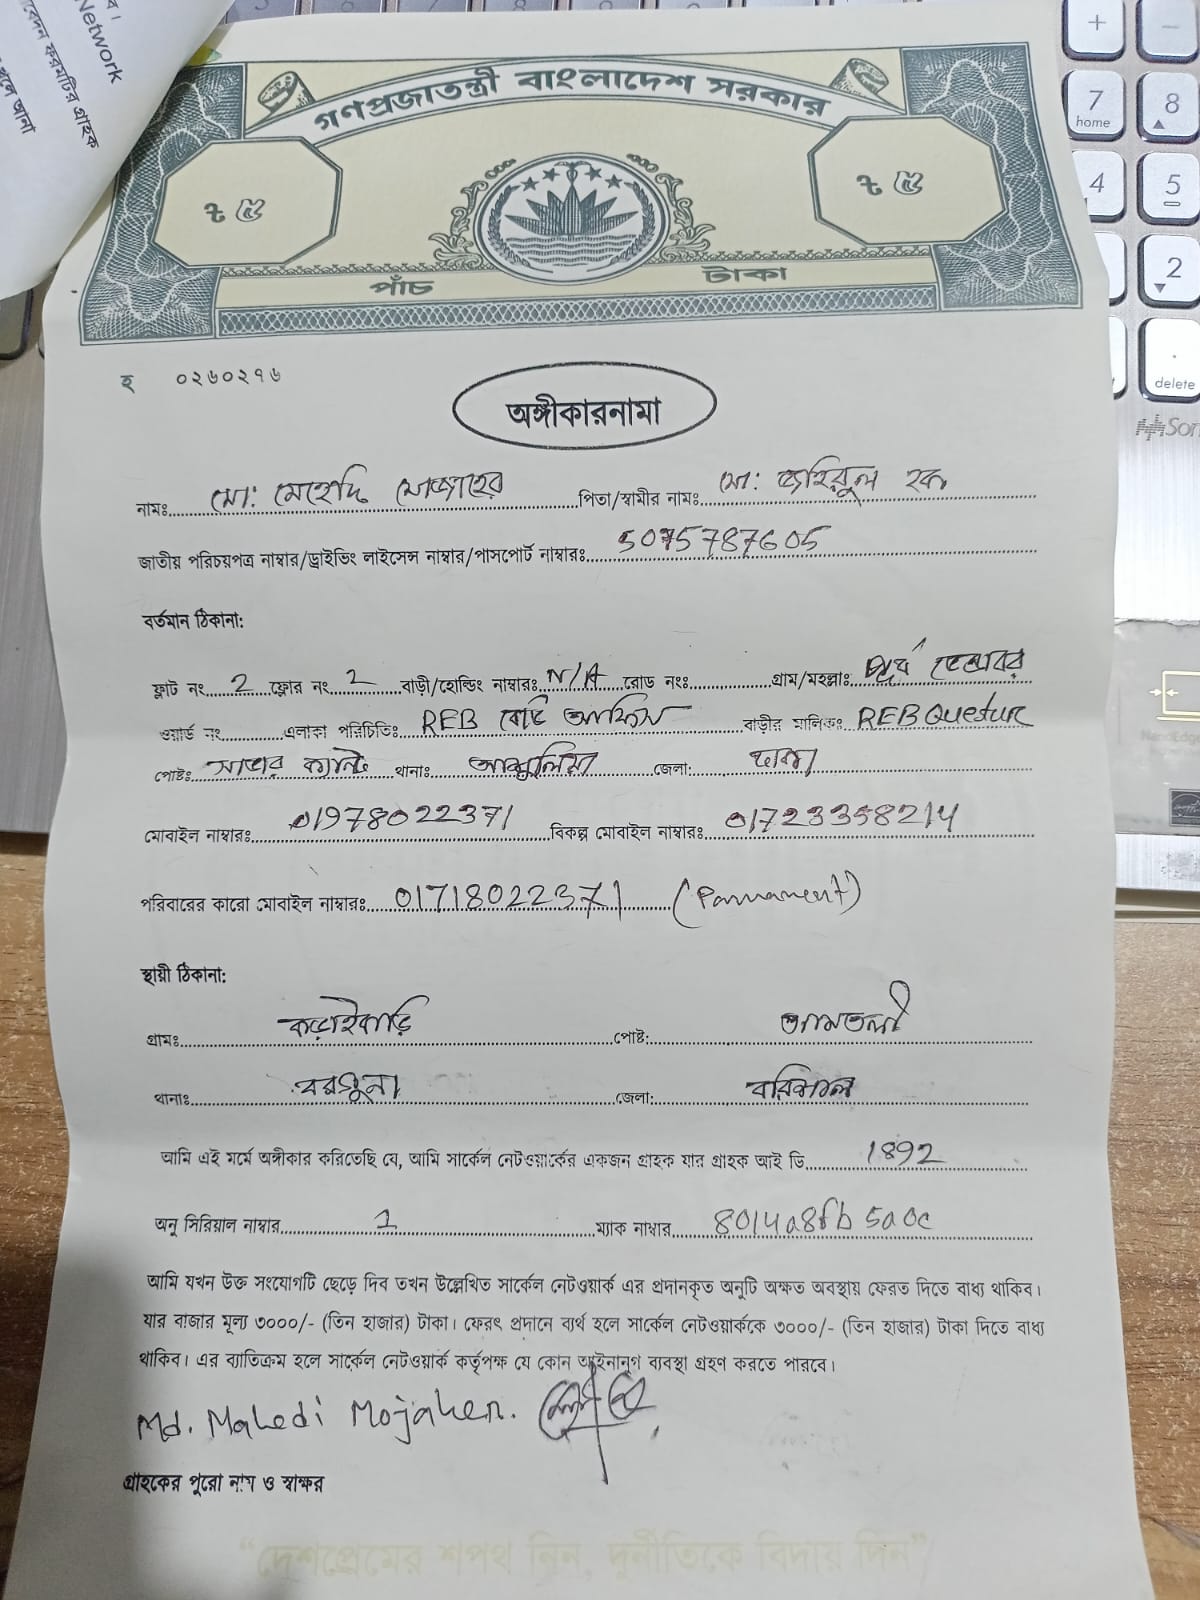 Network
বেদন ফরমটির গ্রাহক
আনা
গণপ্রজাতন্ত্রী বাংলাদেশ সরকার
৳ ৫
৳ ৫
পাঁচ টাকা
হ ০২৬০২৭৬
অঙ্গীকারনামা
নামঃ মো: মেহেদি মোজাহের পিতা/স্বামীর নামঃ মো: জহিরুল হক
জাতীয় পরিচয়পত্র নাম্বার/ড্রাইভিং লাইসেন্স নাম্বার/পাসপোর্ট নাম্বারঃ 5075787605
বর্তমান ঠিকানা:
ফ্লাট নং 2 ফ্লোর নং 2 বাড়ী/হোল্ডিং নাম্বারঃ N/A রোড নংঃ গ্রাম/মহল্লাঃ
ওয়ার্ড নং এলাকা পরিচিতিঃ REB বোর্ড অফিস বাড়ীর মালিকঃ REB Quetur
পোষ্টঃ সাভার ক্যান্ট থানাঃ আশুলিয়া জেলা: ঢাকা
মোবাইল নাম্বারঃ 01978022371 বিকল্প মোবাইল নাম্বারঃ 01723358214
পরিবারের কারো মোবাইল নাম্বারঃ 01718022371 (Parmament)
স্থায়ী ঠিকানা:
গ্রামঃ কড়াইবাড়ি পোষ্ট: আমতলী
থানাঃ বরগুনা জেলা: বরিশাল
আমি এই মর্মে অঙ্গীকার করিতেছি যে, আমি সার্কেল নেটওয়ার্কের একজন গ্রাহক যার গ্রাহক আই ডি 1892
অনু সিরিয়াল নাম্বার 1 ম্যাক নাম্বার 8014a8fb5a0c
আমি যখন উক্ত সংযোগটি ছেড়ে দিব তখন উল্লেখিত সার্কেল নেটওয়ার্ক এর প্রদানকৃত অনুটি অক্ষত অবস্থায় ফেরত দিতে বাধ্য থাকিব।
যার বাজার মূল্য ৩০০০/- (তিন হাজার) টাকা। ফেরৎ প্রদানে ব্যর্থ হলে সার্কেল নেটওয়ার্ককে ৩০০০/- (তিন হাজার) টাকা দিতে বাধ্য
থাকিব। এর ব্যতিক্রম হলে সার্কেল নেটওয়ার্ক কর্তৃপক্ষ যে কোন আইনানুগ ব্যবস্থা গ্রহণ করতে পারবে।
Md. Mahedi Mojaher.
গ্রাহকের পুরো নাম ও স্বাক্ষর
“দেশপ্রেমের শপথ নিন, দুর্নীতিকে বিদায় দিন”
+
-
7
home
8
4
5
2
.
delete